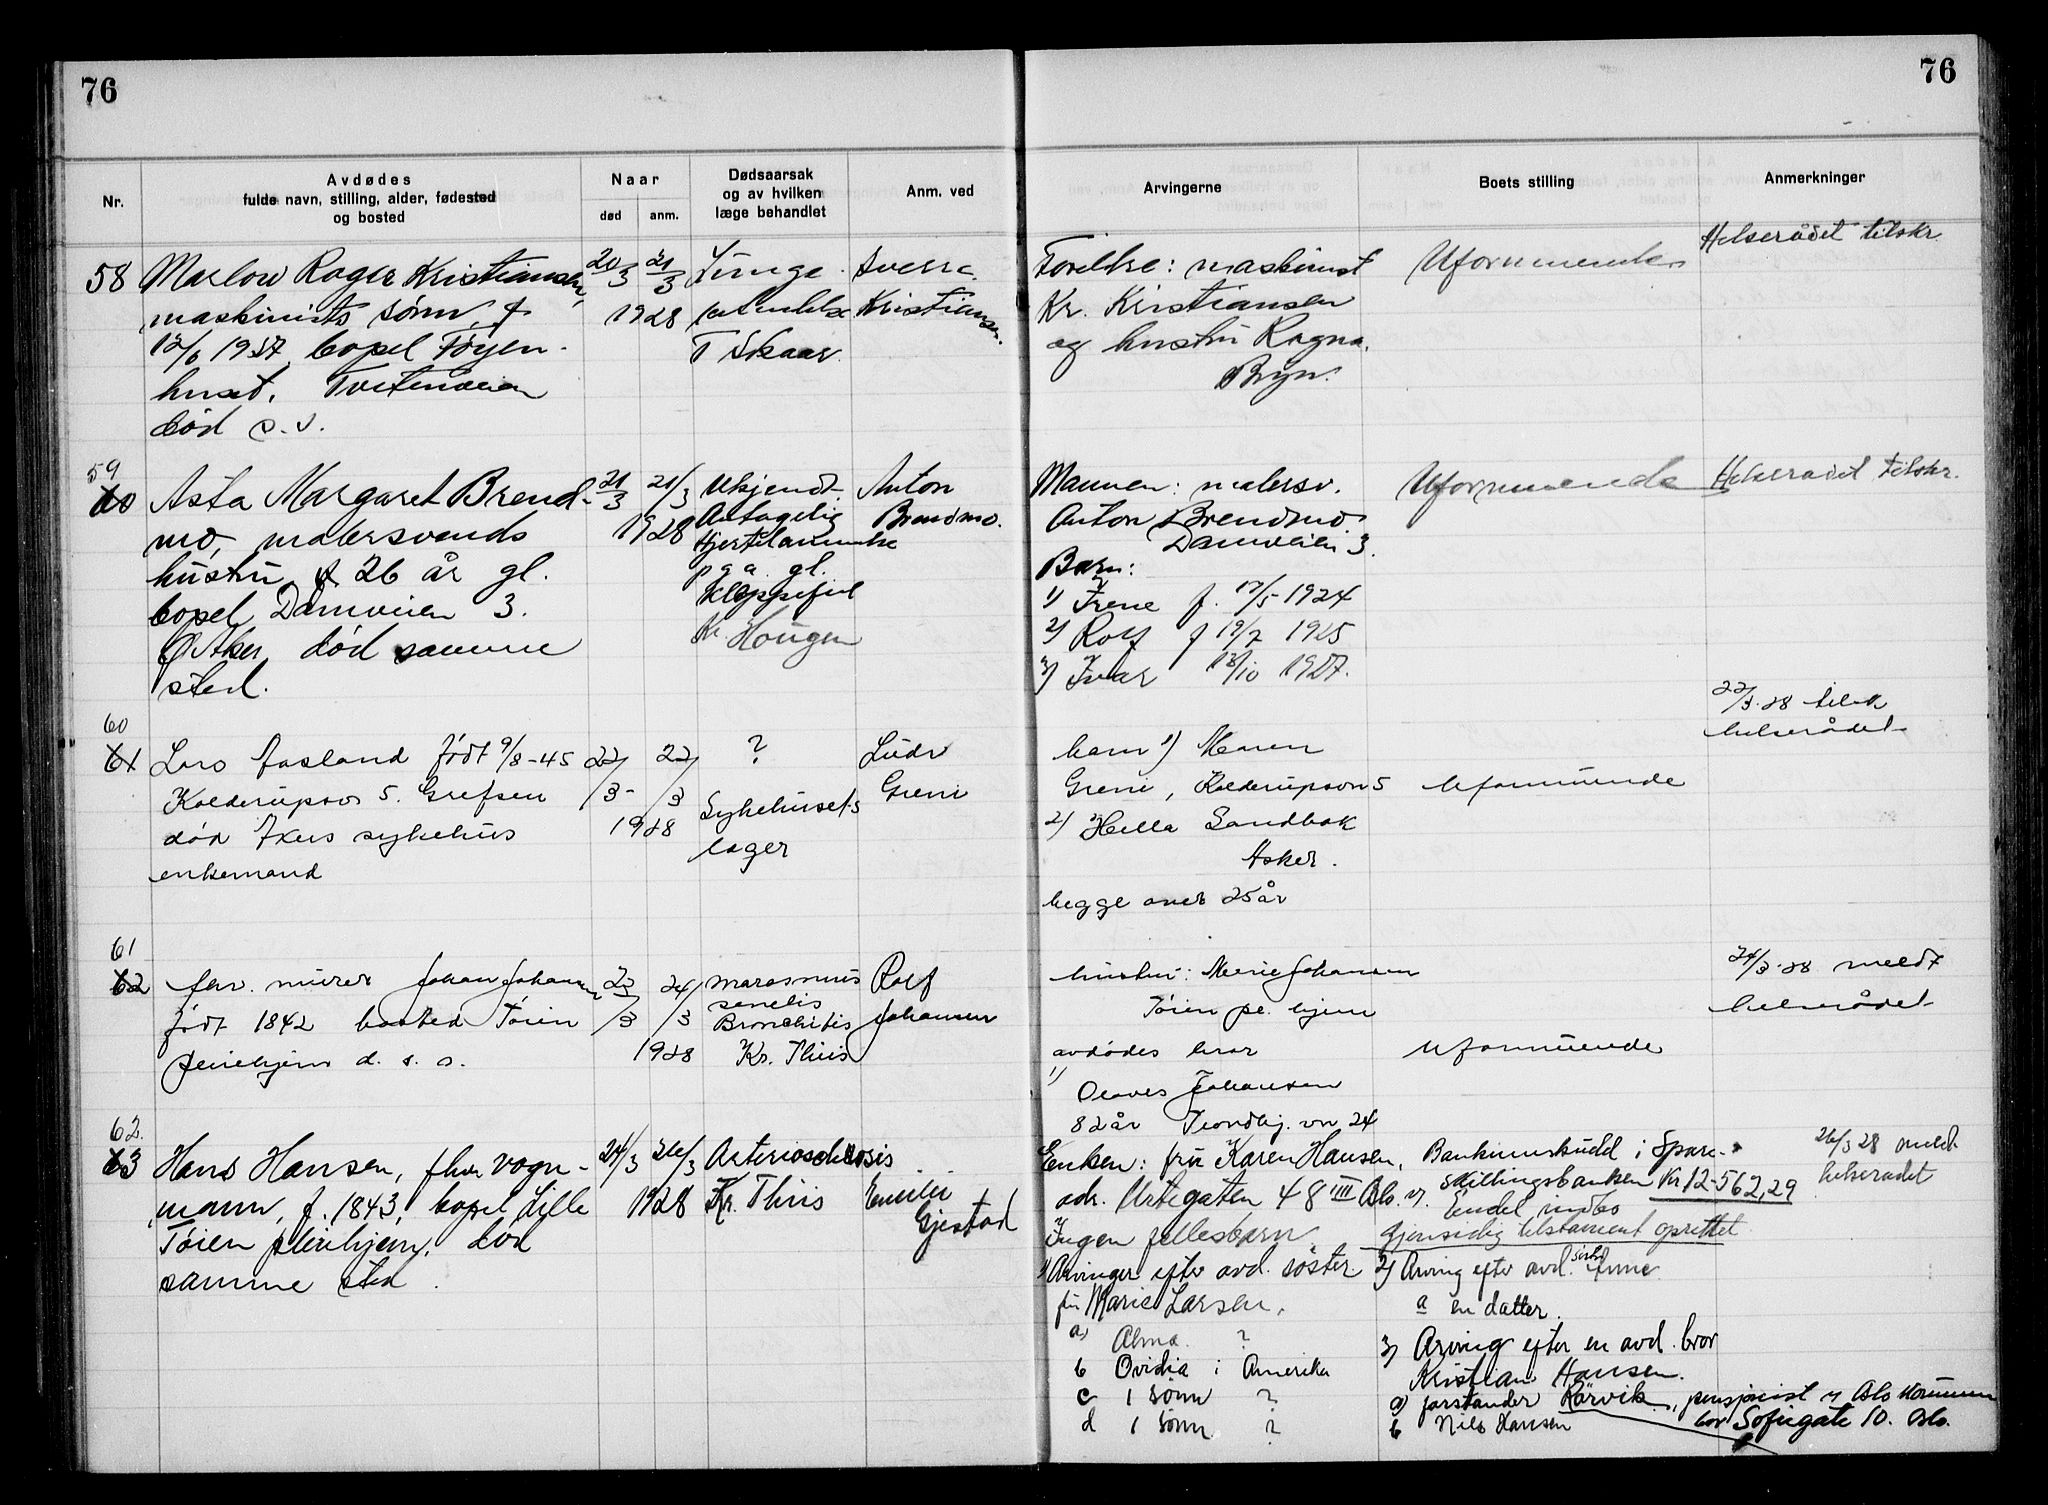 76
76
Nr.
Avdødes
fulde navn, stilling, alder, fødested
og bosted
Naar
død
anm.
Dødsaarsak
og av hvilken
læge behandlet
Anm. ved
Arvingerne
Boets stilling
Anmerkninger
58
Marlow Roger Kristiansen,
maskinists sønn, f
12/6 1927, bopel Tøyen-
huset, Tvetenveien
død s. s.
20/3
21/3
1928
Lunge-
T Skaar
Sverre
Kristiansen.
Foreldre: maskinist
Kr. Kristiansen
og hustru Ragna.
Bryn.
Uformuende
Helserådet tilskr.
59
60
Asta Margaret Brend-
mo, malersvends
hustru, f 26 år gl.
bopel Damveien 3.
Ø. Aker, død samme
sted.
21/3
21/3
1928
Ukjendt.
Antagelig
Hjertelammelse
p g a. gl.
klappefeil
Kr. Hougen
Anton
Brendmo.
Mannen: malersv.
Anton Brendmo
Damveien 3.
Barn:
1) Irene f. 17/5 1924
2) Rolf f 19/7 1925
3) Ivar 13/10 1927.
Uformuende
Helserådet tilskr.
60
61
Lars Aasland født 9/8-45
Kolderupsv 5. Grefsen
død Akers sykehus
enkemand
22/3-
22/3
1928
?
Sykehusets
læger
Ludv
Greni
barn 1) Maren
Greni, Kolderupsvn 5
2) Hella Sandbak
Asker.
begge over 25 år
Uformuende
22/3-28 tilsk
helserådet
61
62
fhv. murer Johan Johansen
født 1842 bosted Tøien
pleiehjem d. s. s.
23/3
24/3
1928
marasmus
senelis
Bronchitis
Kr. Thiis
Rolf
Johansen
hustru: Marie Johansen
Tøien pl. hjem
avdødes bror
1) Olaves Johansen
82 år Trondhj. vn 24
Uformuende
24/3-28 meldt
helserådet
62.
63
Hans Hansen, fhv vogn-
mann, f. 1843, bopel Lille
Tøien pleiehjem, død
samme sted.
24/3
26/3
1928
Arteriosclerosis
Kr. Thiis
Emilie
Gjestad
Enken: fru Karen Hansen,
adr. Urtegaten 48 IIII Oslo.
Ingen fellesbarn
1) Arvinger efter avd. søster
fru Marie Larsen.
a) Alma ?
b Ovidia i Amerika
c 1 sønn ?
d 1 sønn ?
Bankinnskudd i Spare-
skillingsbanken Kr 12-562,29
Endel indbo
Gjensidig testament oprettet
2) Arving efter avd. søster Anne
a en datter.
3) Arving efter en avd. bror
Kristian Hansen.
a) forstander Rørvik, pensjonist v Oslo kommune
bor Sofiegate 10. Oslo.
b Nils Hansen
26/3 28 meldt
helserådet